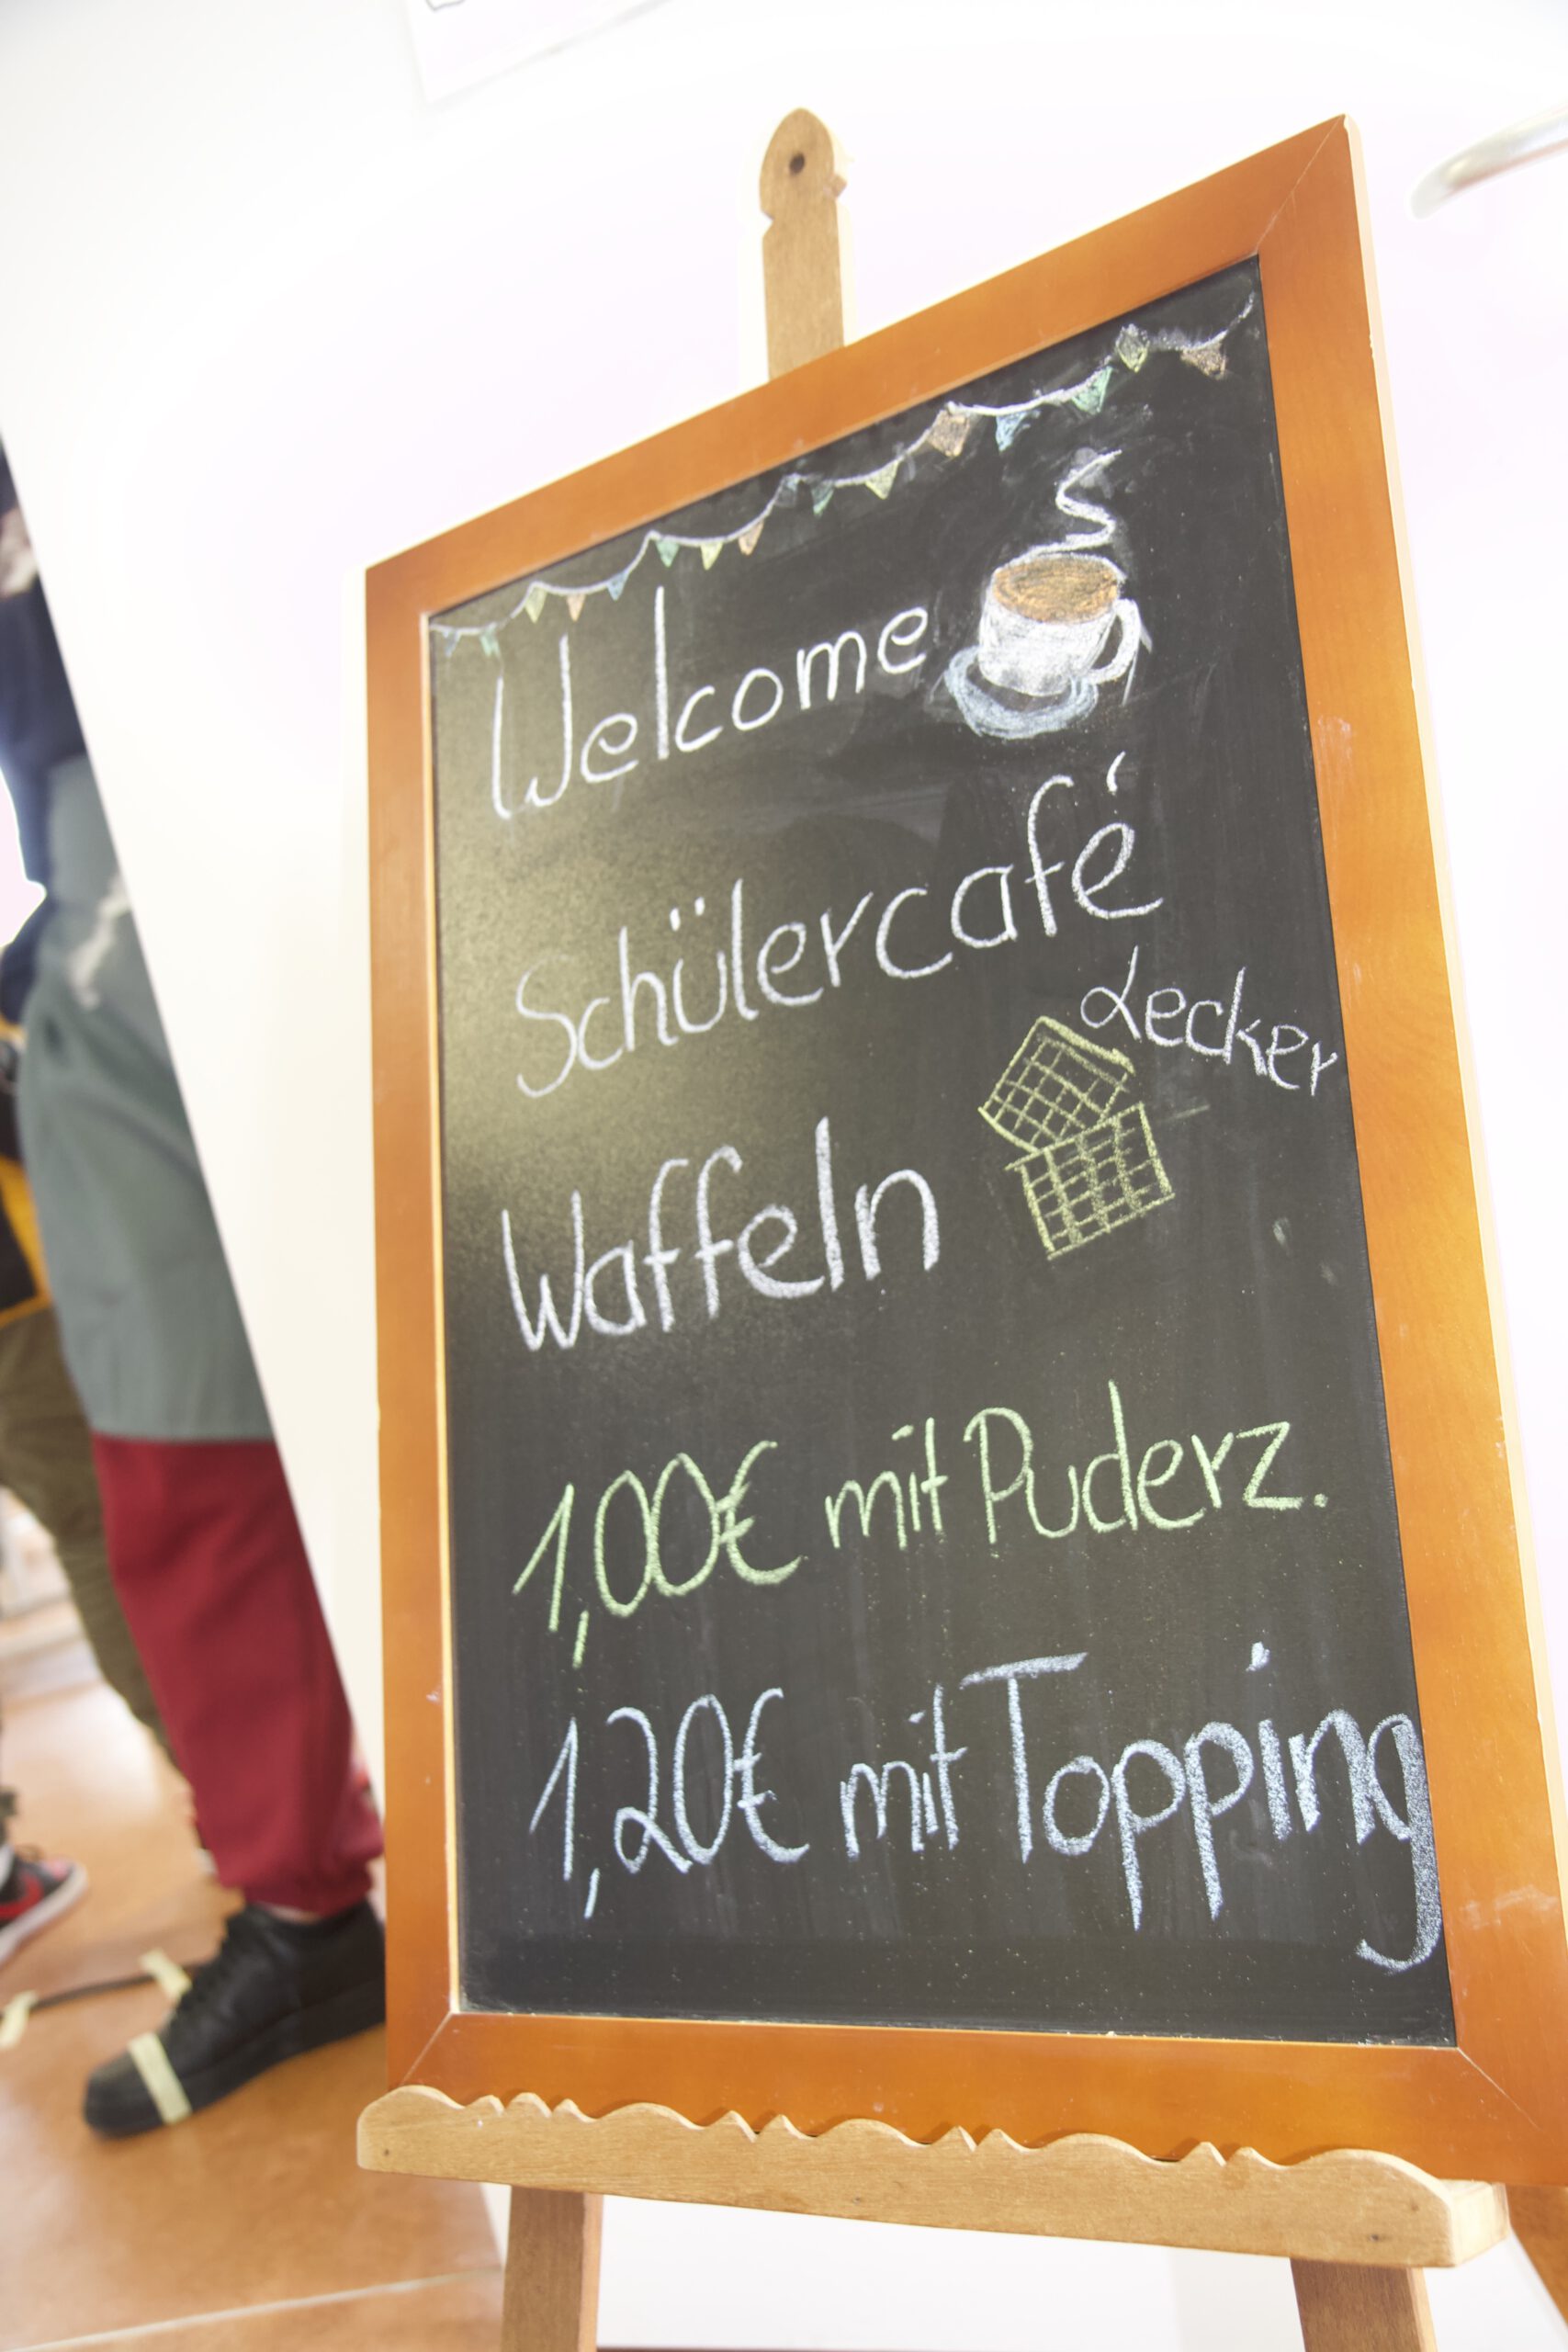 Welcome
Schülercafé
Lecker
Waffeln
1,00€ mit Puderz.
1,20€ mit Topping